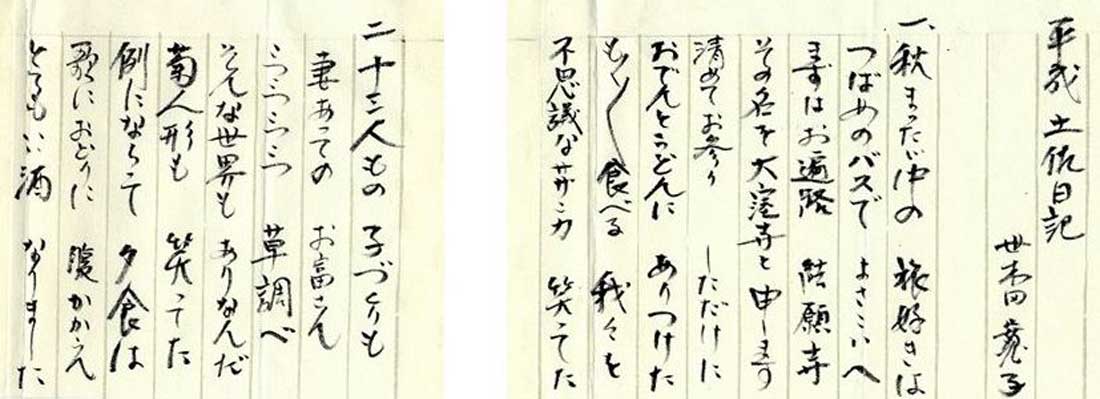 平成 土佐日記
世木田
一、秋まったゞ中の 旅好きは
つばめのバスで よさこいへ
まずはお遍路 結願寺
その名を大窪寺と申します
清めてお参り しただけに
おでんとうどんに ありつけた
もく〳〵食べる 我々を
不思議なサザンカ 笑ってた
二十三人もの 子づくりも
妻あっての お富さん
草調べ
そんな世界も ありなんだ
菊人形も 笑ってた
例にならって 夕食は
歌におどりに 腹かかえ
とてもいい酒 なりました